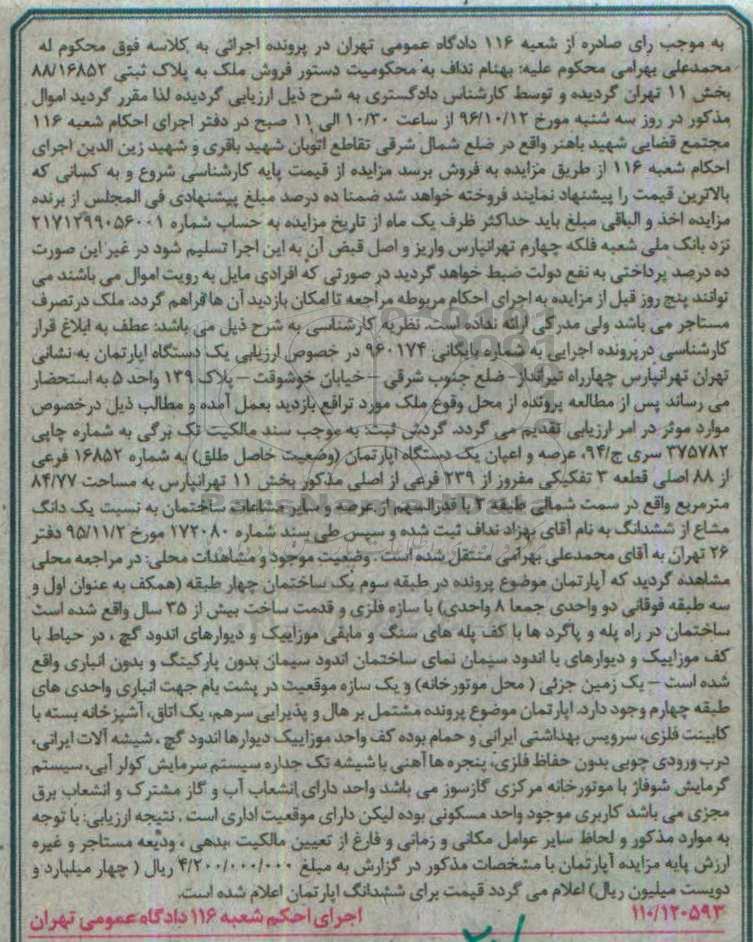 به موجب رای صادره از شعبه ۱۱۶ دادگاه عمومی تهران در پرونده اجرائی به کلاسه فوق محکوم له
محمدعلی بهرامی محکوم علیه: بهنام نداف به محکومیت دستور فروش ملک به پلاک ثبتی ۸۸/۱۶۸۵۲
بخش ۱۱ تهران گردیده و توسط کارشناس دادگستری به شرح ذیل ارزیابی گردیده لذا مقرر گردید اموال
مذکور در روز سه شنبه مورخ ۹۶/۱۰/۱۲ از ساعت ۱۰/۳۰ الی ۱۱ صبح در دفتر اجرای احکام شعبه ۱۱۶
مجتمع قضایی شهید باهنر واقع در ضلع شمال شرقی تقاطع اتوبان شهید باقری و شهید زین الدین اجرای
احکام شعبه ۱۱۶ از طریق مزایده به فروش برسد مزایده از قیمت پایه کارشناسی شروع و به کسانی که
بالاترین قیمت را پیشنهاد نمایند فروخته خواهد شد ضمنا ده درصد مبلغ پیشنهادی فی المجلس از برنده
مزایده اخذ و الباقی مبلغ باید حداکثر ظرف یک ماه از تاریخ مزایده به حساب شماره ۲۱۷۱۲۹۹۰۵۶۰۰۱
نزد بانک ملی شعبه فلکه چهارم تهرانپارس واریز و اصل قبض آن به این اجرا تسلیم شود در غیر این صورت
ده درصد پرداختی به نفع دولت ضبط خواهد گردید در صورتی که افرادی مایل به رویت اموال می باشند می
توانند پنج روز قبل از مزایده به اجرای احکام مربوطه مراجعه تا امکان بازدید آن ها فراهم گردد. ملک درتصرف
مستاجر می باشد ولی مدرکی ارائه نداده است. نظریه کارشناسی به شرح ذیل می باشد: عطف به ابلاغ قرار
کارشناسی درپرونده اجرایی به شماره بایگانی ۹۶۰۱۷۴ در خصوص ارزیابی یک دستگاه اپارتمان به نشانی
تهران تهرانپارس چهارراه تیرانداز- ضلع جنوب شرقی - خیابان خوشوقت - پلاک ۱۳۹ واحد ۵ به استحضار
می رساند پس از مطالعه پرونده از محل وقوع ملک مورد ترافع بازدید بعمل آمده و مطالب ذیل درخصوص
موارد موثر در امر ارزیابی تقدیم می گردد. گردش ثبت: به موجب سند مالکیت تک برگی به شماره چاپی
۳۷۵۷۸۲ سری ج/۹۴، عرصه و اعیان یک دستگاه اپارتمان (وضعیت خاصل طلق) به شماره ۱۶۸۵۲ فرعی
از ۸۸ اصلی قطعه ۳ تفکیکی مفروز از ۲۳۹ فرعی از اصلی مذکور بخش ۱۱ تهرانپارس به مساحت ۸۴/۷۷
مترمربع واقع در سمت شمالی طبقه ۳ با قدرالسهم از عرصه و سایر مشاعات ساختمان به نسبت یک دانگ
مشاع از ششدانگ به نام آقای بهزاد نداف ثبت شده و سپس طی سند شماره ۱۷۲۰۸۰ مورخ ۹۵/۱۱/۲ دفتر
۲۶ تهران به آقای محمدعلی بهرامی منتقل شده است. وضعیت موجود و مشاهدات محلی: در مراجعه محلی
مشاهده گردید که آپارتمان موضوع پرونده در طبقه سوم یک ساختمان چهار طبقه (همکف به عنوان اول و
سه طبقه فوقانی دو واحدی جمعا ۸ واحدی) با سازه فلزی و قدمت ساخت بیش از ۳۵ سال واقع شده است
ساختمان در راه پله و پاگرد ها با کف پله های سنگ و مابقی موزاییک و دیوارهای اندود گچ ، در حیاط با
کف موزاییک و دیوارهای با اندود سیمان نمای ساختمان اندود سیمان بدون پارکینگ و بدون انباری واقع
شده است - یک زمین جزئی ( محل موتورخانه) و یک سازه موقعیت در پشت بام جهت انباری واحدی های
طبقه چهارم وجود دارد. اپارتمان موضوع پرونده مشتمل بر هال و پذیرایی سرهم، یک اتاق، آشپزخانه بسته با
کابینت فلزی، سرویس بهداشتی ایرانی و حمام بوده کف واحد موزاییک دیوارها اندود گچ ، شیشه آلات ایرانی،
درب ورودی چوبی بدون حفاظ فلزی، پنجره ها آهنی با شیشه تک جداره سیستم سرمایش کولر آبی، سیستم
گرمایش شوفاژ با موتورخانه مرکزی گازسوز می باشد واحد دارای انشعاب آب و گاز مشترک و انشعاب برق
مجزی می باشد کاربری موجود واحد مسکونی بوده لیکن دارای موقعیت اداری است . نتیجه ارزیابی: با توجه
به موارد مذکور و لحاظ سایر عوامل مکانی و زمانی و فارغ از تعیین مالکیت ،بدهی ، ودیعه مستاجر و غیره
ارزش پایه مزایده آپارتمان با مشخصات مذکور در گزارش به مبلغ ۴/۲۰۰/۰۰۰/۰۰۰ ریال ( چهار میلیارد و
دویست میلیون ریال) اعلام می گردد قیمت برای ششدانگ اپارتمان اعلام شده است.
۱۱۰/۱۲۰۵۹۳ اجرای احکم شعبه ۱۱۶ دادگاه عمومی تهران